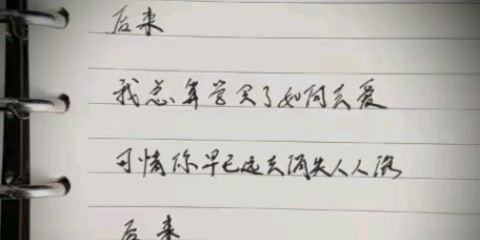 后来
我总算学会了如何去爱
可惜你早已远去消失人人海
后来